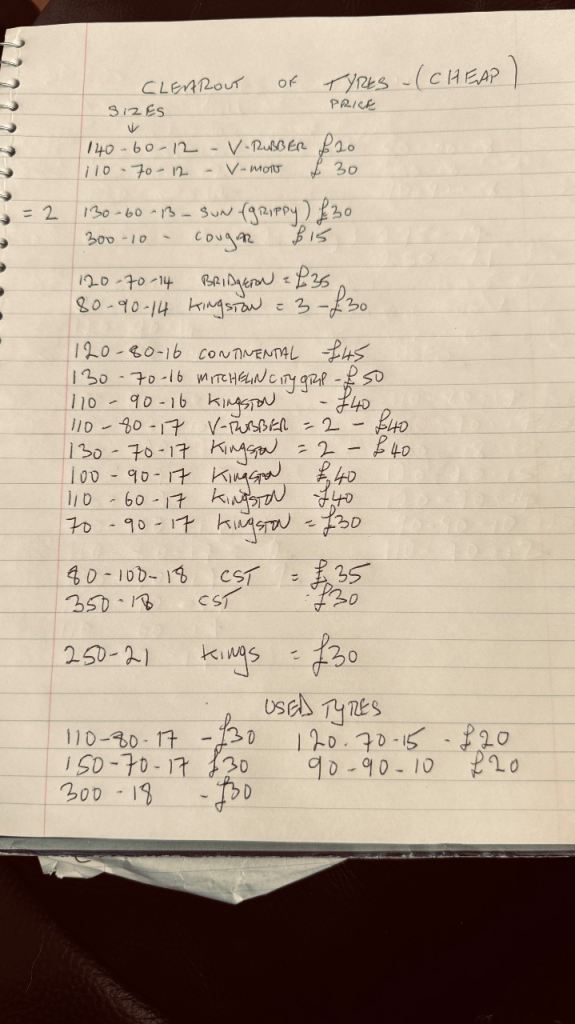 CLEAROUT OF TYRES - (CHEAP)
SIZES PRICE
↓
140-60-12 - V-RUBBER £20
110-70-12 - V-MOTO £30
= 2 130-60-13 - SUN-(GRIPPY) £30
300-10 - COUGAR £15
120-70-14 BRIDGETON = £35
80-90-14 KINGSTON = 3 - £30
120-80-16 CONTINENTAL - £45
130-70-16 MITCHELIN CITY GRIP - £50
110-90-16 KINGSTON - £40
110-80-17 V-RUBBER = 2 - £40
130-70-17 KINGSTON = 2 - £40
100-90-17 KINGSTON £40
110-60-17 KINGSTON - £40
70-90-17 KINGSTON = £30
80-100-18 CST = £35
350-18 CST : £30
250-21 KINGS = £30
USED TYRES
110-80-17 - £30 120.70-15 - £20
150-70-17 £30 90-90-10 £20
300-18 - £30